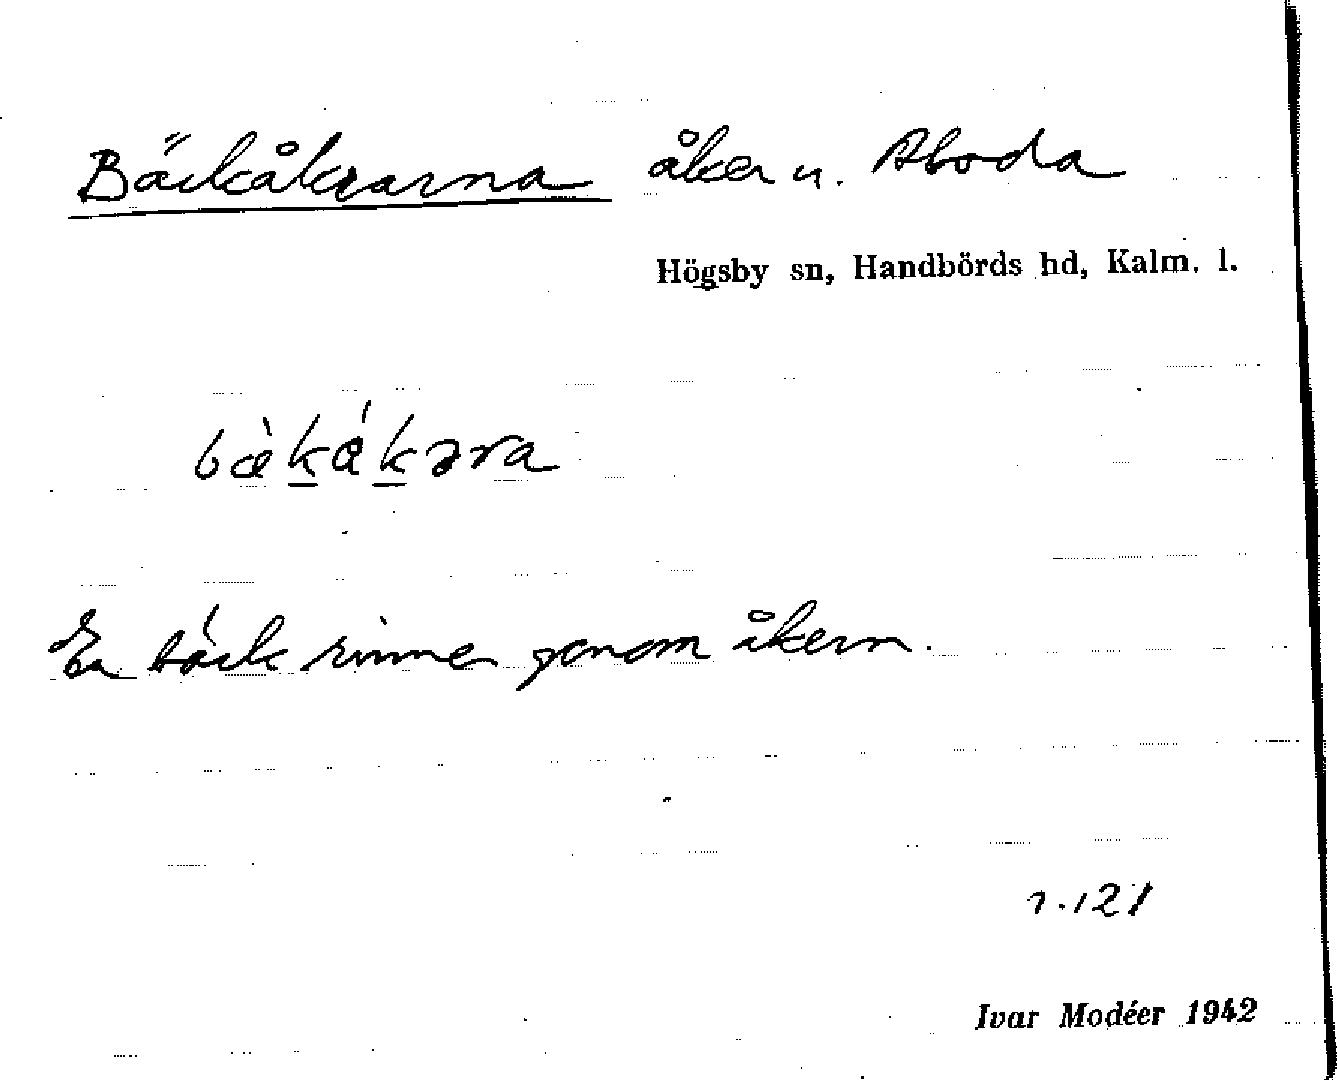 Bäckåkrarna åker u. Aboda
Högsby sn, Handbörds hd, Kalm. l.
bæ̀k̲ákəra
En bäck rinner genom åkern.
1.121
Ivar Modéer 1942